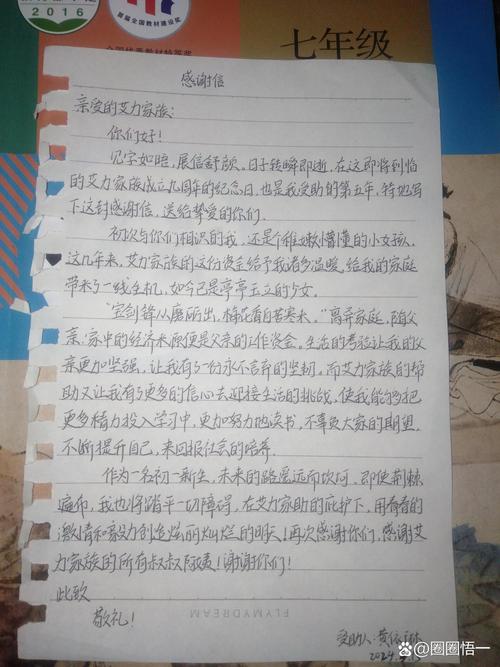 2016
首届全国教材建设奖
全国优秀教材特等奖
七年级
感谢信
亲爱的艾力家族:
你们好!
见字如晤,展信舒颜。日子转瞬即逝,在这即将到临
的艾力家族成立九周年的纪念日,也是我受助的第五年,特地写
下这封感谢信,送给挚爱的你们。
初次与你们相识的我,还是个稚嫩懵懂的小女孩。
这几年来,艾力家族的这份资金给予我诸多温暖,给我的家庭
带来了一线生机,如今已是亭亭玉立的少女。
“宝剑锋从磨砺出,梅花香自苦寒来。”离异家庭,随父
亲,家中的经济来源便是父亲的工作资金。生活的考验让我的父
亲更加坚强,让我有了一份永不言弃的坚韧,而艾力家族的帮
助又让我有了更多的信心去迎接生活的挑战,使我能够把
更多精力投入学习中,更加努力地读书,不辜负大家的期望,
不断提升自己,来回报社会的培养。
作为一名初一新生,未来的路遥远而坎坷,即使荆棘
遍布,我也将踏平一切障碍,在艾力家助的庇护下,用青春的
激情和毅力创造绚丽灿烂的明天!再次感谢你们,感谢艾
力家族的所有叔叔阿姨!谢谢你们!
此致
敬礼!
FLYMYDREAM
受助人:黄
2024.9.15
@圈圈悟一